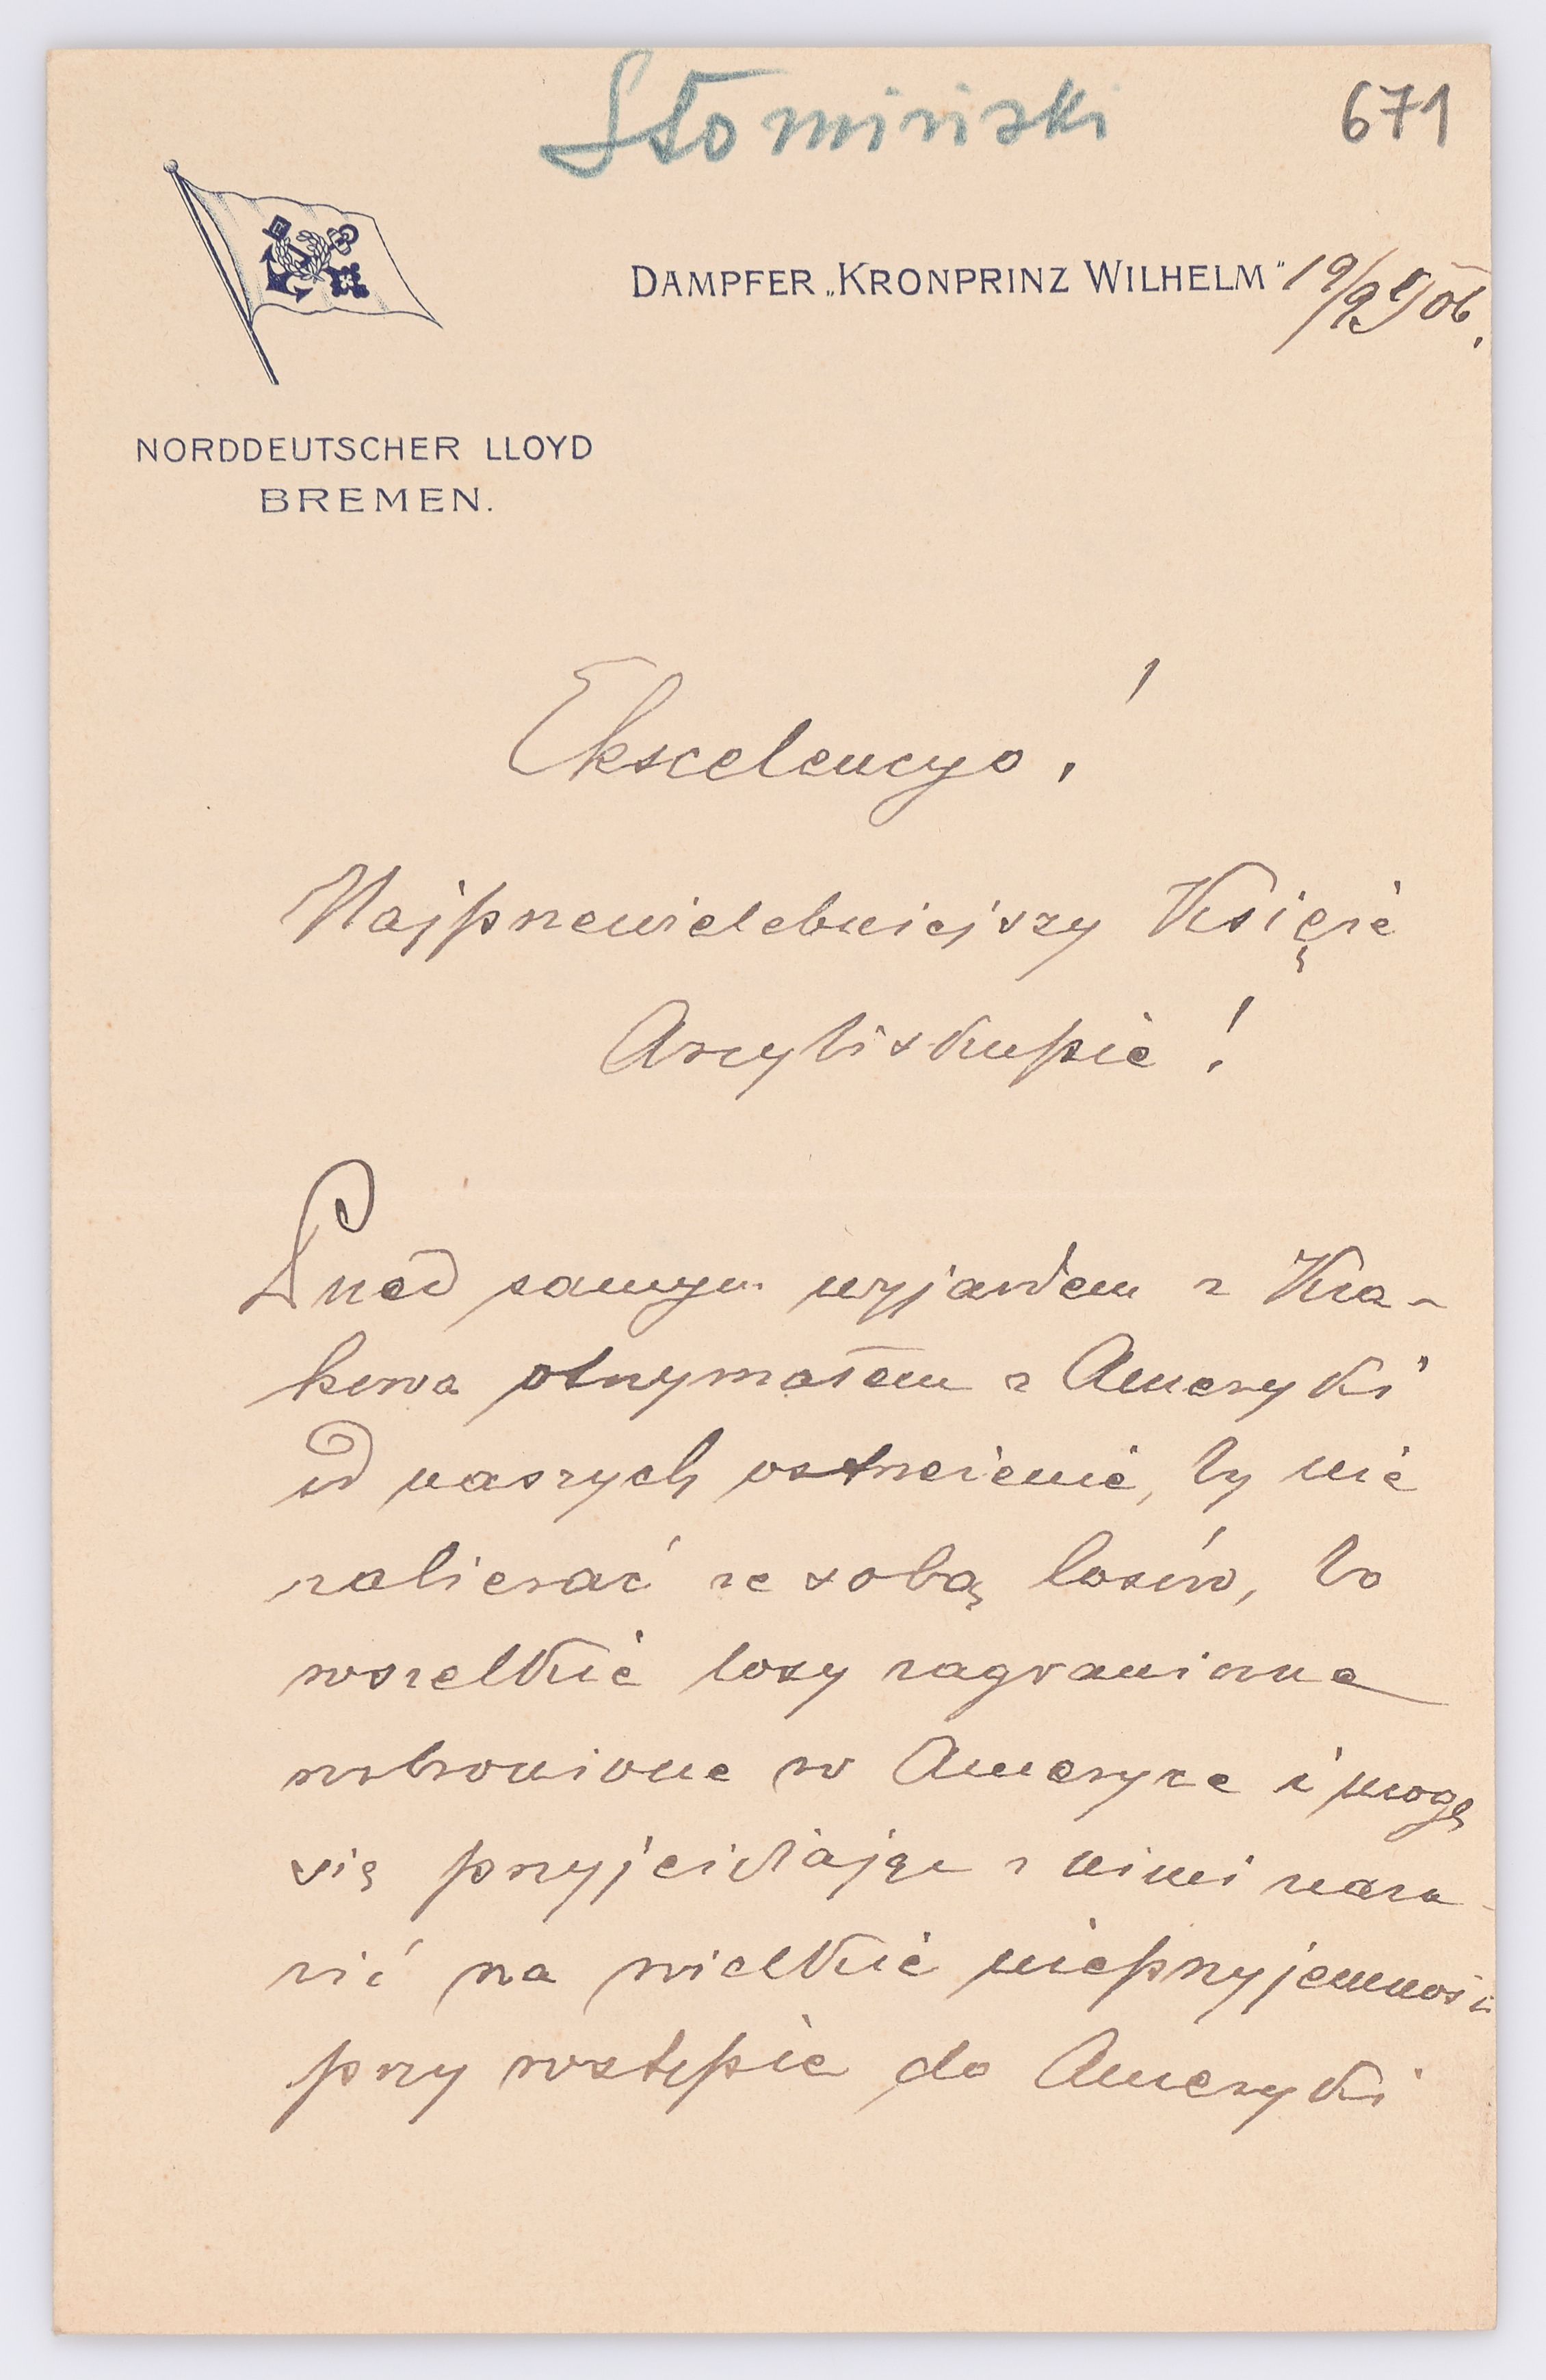 Słomiński
671
DAMPFER „KRONPRINZ WILHELM" 19/9 06.
NORDDEUTSCHER LLOYD
BREMEN.
Ekscelencyo!
Najprzewielebniejszy Księże
Arcybiskupie!
Przed samym wyjazdem z Kra-
kowa otrzymałem z Ameryki
od naszych ostrzeżenie, by nie
zabierać ze sobą losów, bo
wszelkie losy zagraniczne
wzbronione w Ameryce i mogę
się przyjeżdżając z nimi nara-
zić na wielkie nieprzyjemności
przy wstępie do Ameryki